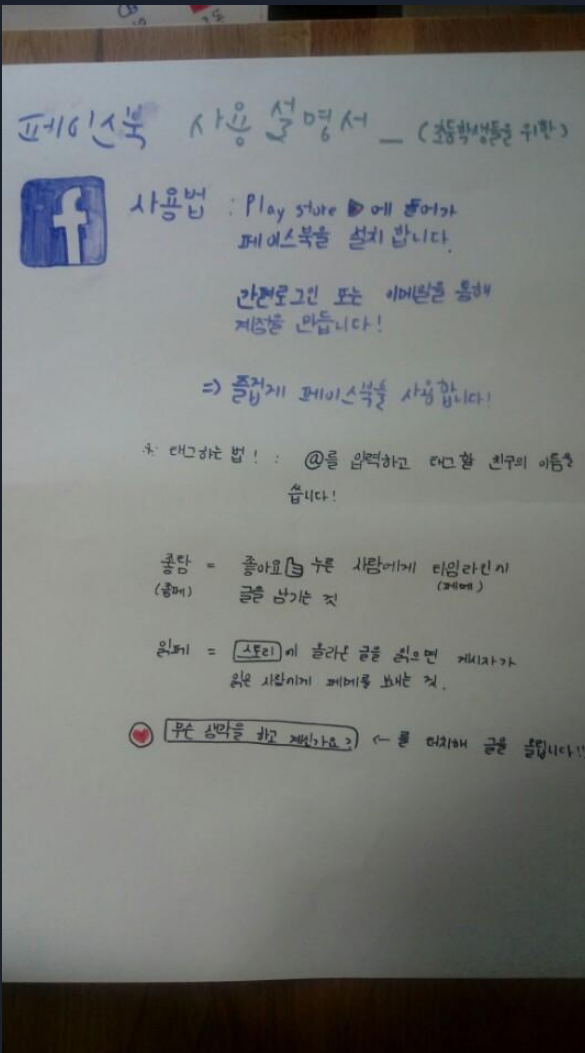 페이스북 사용 설명서 _ (초등학생들을 위한)
f
사용법 : Play store ▶에 들어가
페이스북을 설치 합니다.
간편로그인 또는 이메일을 통해
계정을 만듭니다!
=> 즐겁게 페이스북을 사용합니다!
※ 태그하는 법! : @를 입력하고 태그 할 친구의 이름을
씁니다!
좋탐 = 좋아요 누른 사람에게 타임라인에
(좋페) 글을 남기는 것 (페메)
읽페 = 스토리에 올라온 글을 읽으면 게시자가
읽은 사람에게 페메를 보내는 것.
무슨 생각을 하고 계신가요? ← 를 터치해 글을 올립니다!!